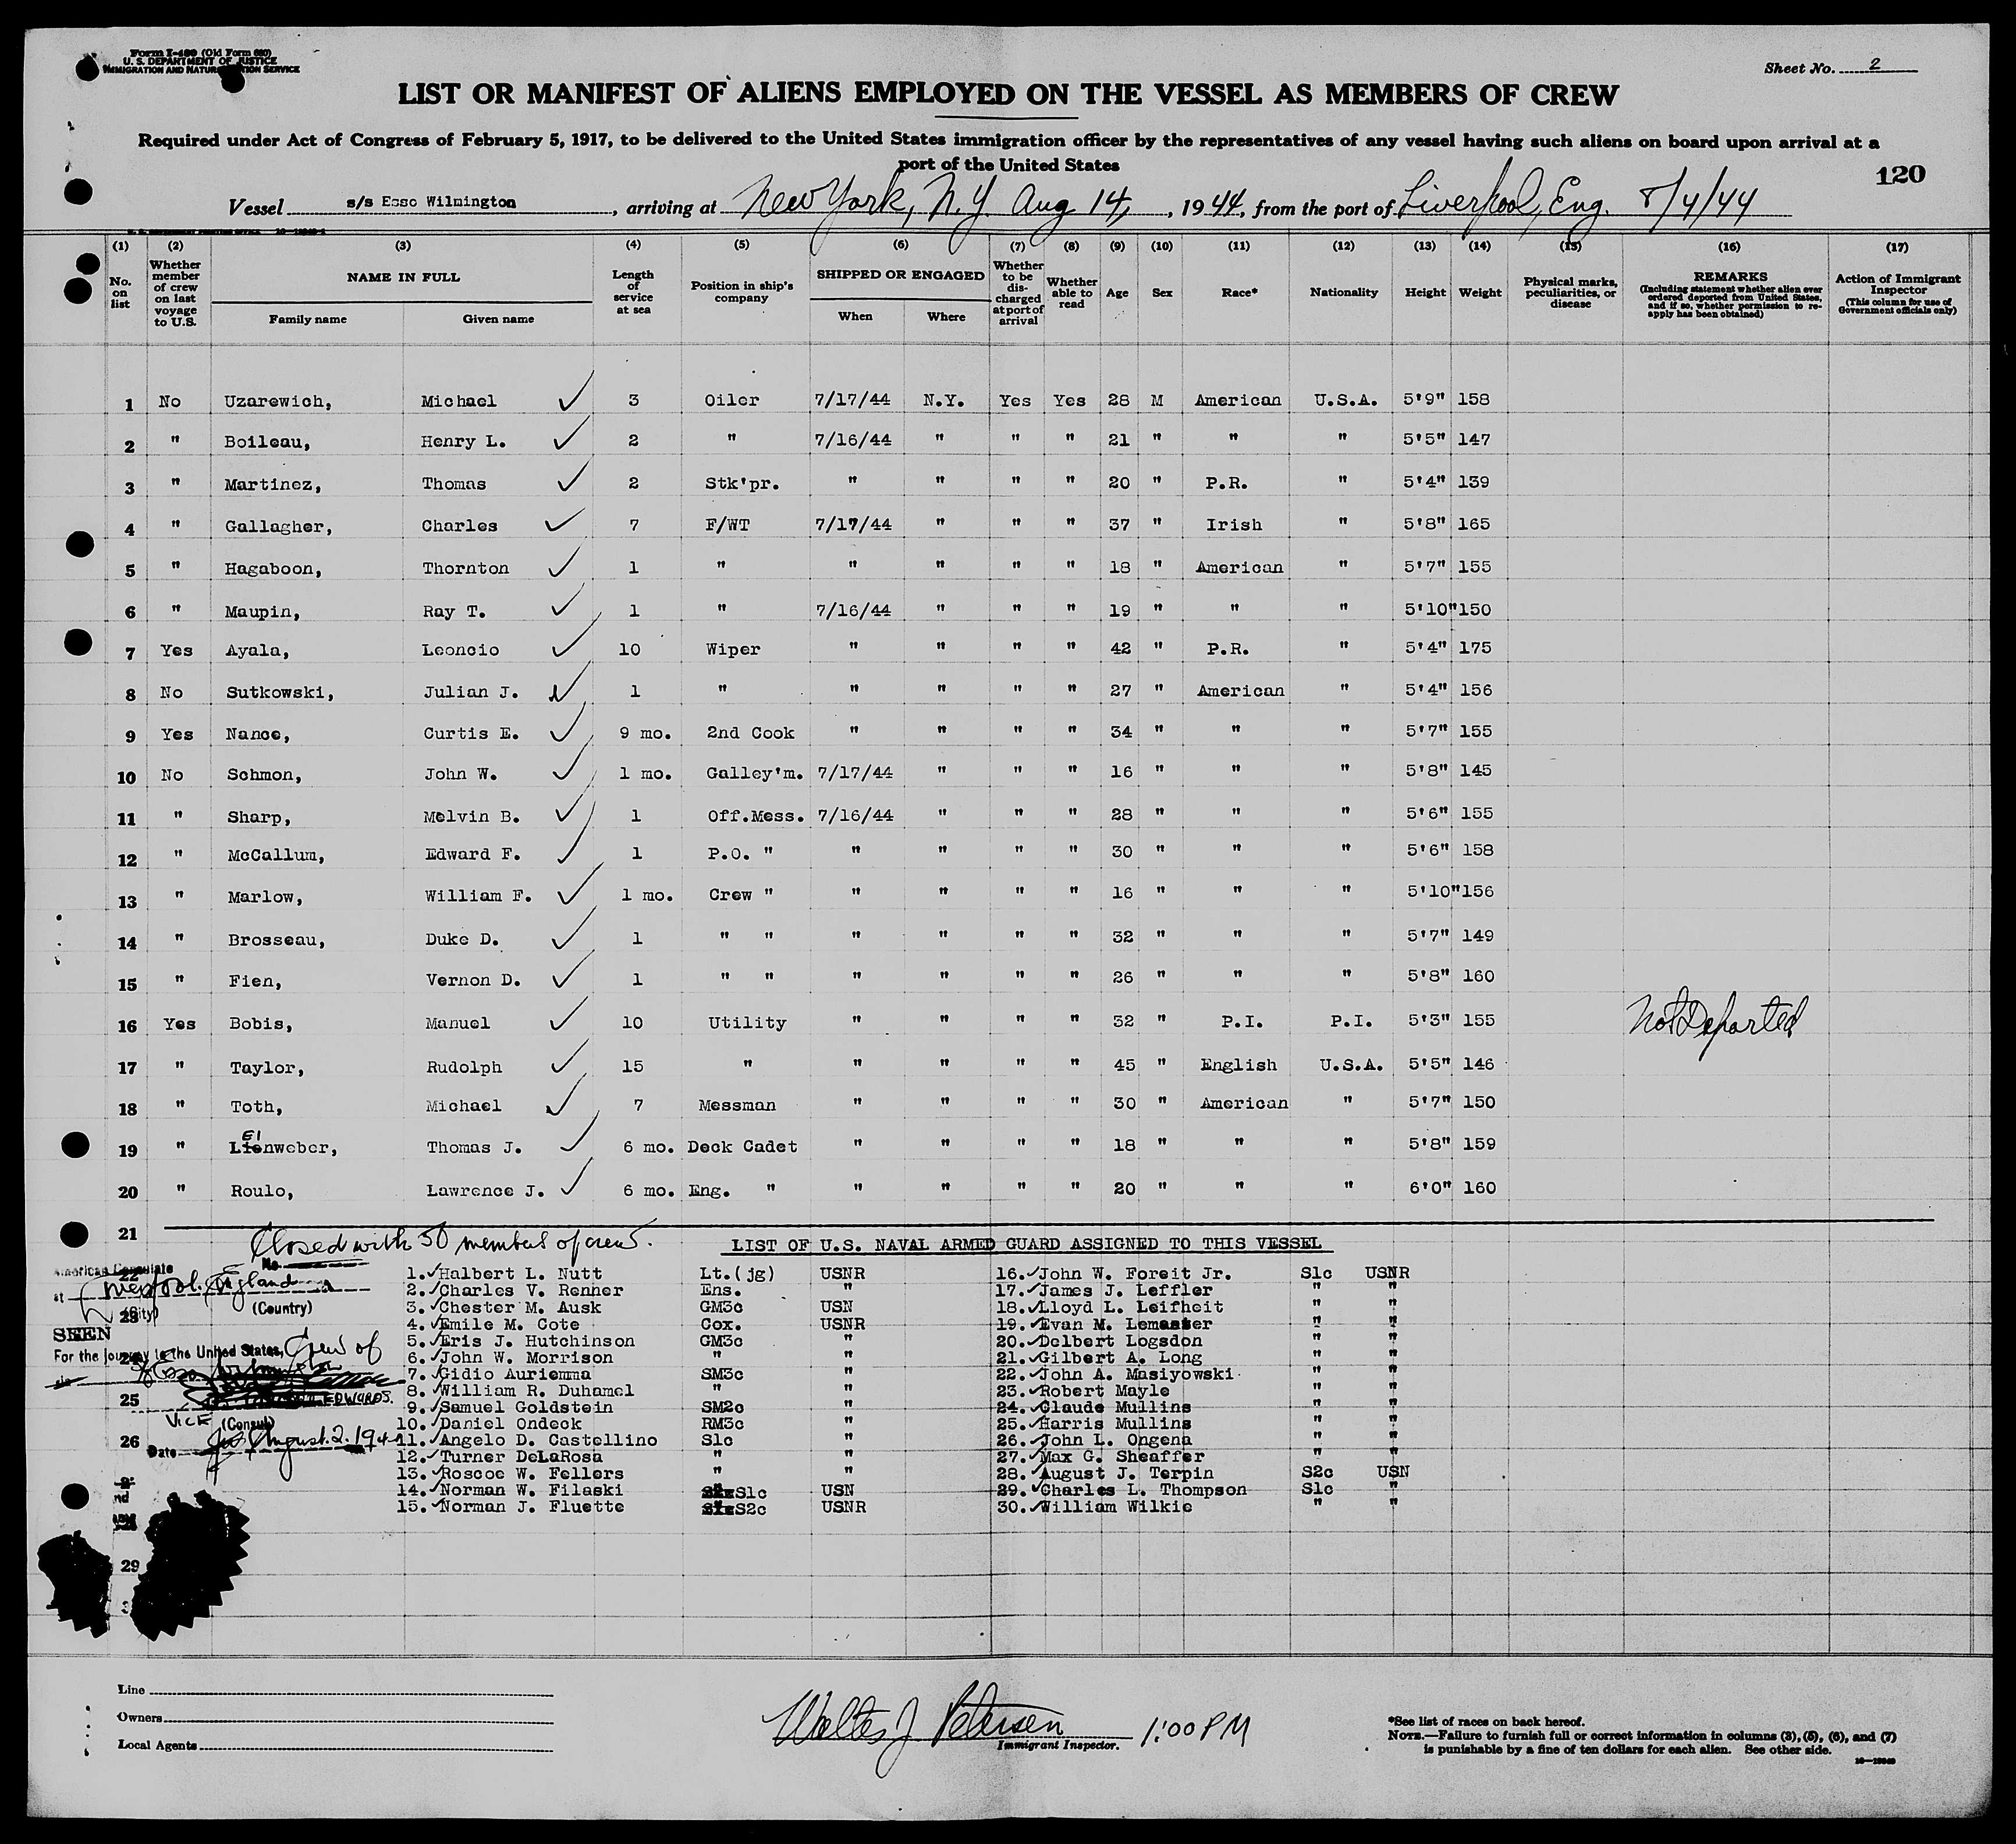 Form I-480 (Old Form 680)
U. S. DEPARTMENT OF JUSTICE
IMMIGRATION AND NATURALIZATION SERVICE
Sheet No. 2
LIST OR MANIFEST OF ALIENS EMPLOYED ON THE VESSEL AS MEMBERS OF CREW
Required under Act of Congress of February 5, 1917, to be delivered to the United States immigration officer by the representatives of any vessel having such aliens on board upon arrival at a
port of the United States
120
Vessel s/s Esso Wilmington, arriving at New York, N.Y. Aug 14, 1944, from the port of Liverpool, Eng. 8/4/44
(1) (2) (3) (4) (5) (6) (7) (8) (9) (10) (11) (12) (13) (14) (15) (16) (17)
No. on list
Whether member of crew on last voyage to U.S.
NAME IN FULL
Family name Given name
Length of service at sea
Position in ship's company
SHIPPED OR ENGAGED
When Where
Whether to be discharged at port of arrival
Whether able to read
Age
Sex
Race*
Nationality
Height
Weight
Physical marks, peculiarities, or disease
REMARKS
(Including statement whether alien ever ordered deported from United States, and if so, whether permission to re-apply has been obtained)
Action of Immigrant Inspector
(This column for use of Government officials only)
1 No Uzarewich, Michael 3 Oiler 7/17/44 N.Y. Yes Yes 28 M American U.S.A. 5'9" 158
2 " Boileau, Henry L. 2 " 7/16/44 " " " 21 " " " 5'5" 147
3 " Martinez, Thomas 2 Stk'pr. " " " " 20 " P.R. " 5'4" 139
4 " Gallagher, Charles 7 F/WT 7/17/44 " " " 37 " Irish " 5'8" 165
5 " Hagaboon, Thornton 1 " " " " " 18 " American " 5'7" 155
6 " Maupin, Ray T. 1 " 7/16/44 " " " 19 " " " 5'10" 150
7 Yes Ayala, Leoncio 10 Wiper " " " " 42 " P.R. " 5'4" 175
8 No Sutkowski, Julian J. 1 " " " " " 27 " American " 5'4" 156
9 Yes Nance, Curtis E. 9 mo. 2nd Cook " " " " 34 " " " 5'7" 155
10 No Schmon, John W. 1 mo. Galley'm. 7/17/44 " " " 16 " " " 5'8" 145
11 " Sharp, Melvin B. 1 Off.Mess. 7/16/44 " " " 28 " " " 5'6" 155
12 " McCallum, Edward F. 1 P.O. " " " " " 30 " " " 5'6" 158
13 " Marlow, William F. 1 mo. Crew " " " " " 16 " " " 5'10" 156
14 " Brosseau, Duke D. 1 " " " " " " 32 " " " 5'7" 149
15 " Fien, Vernon D. 1 " " " " " " 26 " " " 5'8" 160
16 Yes Bobis, Manuel 10 Utility " " " " 32 " P.I. P.I. 5'3" 155 Not Deported
17 " Taylor, Rudolph 15 " " " " " 45 " English U.S.A. 5'5" 146
18 " Toth, Michael 7 Messman " " " " 30 " American " 5'7" 150
19 " Leinweber, Thomas J. 6 mo. Deck Cadet " " " " 18 " " " 5'8" 159
20 " Roulo, Lawrence J. 6 mo. Eng. " " " " " 20 " " " 6'0" 160
21
Closed with 50 members of crew.
LIST OF U.S. NAVAL ARMED GUARD ASSIGNED TO THIS VESSEL
1. Halbert L. Nutt Lt.(jg) USNR 16. John W. Foreit Jr. S1c USNR
2. Charles V. Renner Ens. " 17. James J. Leffler " "
3. Chester M. Ausk GM3c USN 18. Lloyd L. Leifheit " "
4. Emile M. Cote Cox. USNR 19. Evan M. Lemaster " "
5. Eris J. Hutchinson GM3c " 20. Delbert Logsdon " "
6. John W. Morrison " " 21. Gilbert A. Long " "
7. Gidio Auriemma SM3c " 22. John A. Masiyowski " "
8. William R. Duhamel " " 23. Robert Mayle " "
9. Samuel Goldstein SM2c " 24. Claude Mullins " "
10. Daniel Ondeck RM3c " 25. Harris Mullins " "
11. Angelo D. Castellino S1c " 26. John L. Ongena " "
12. Turner DeLaRosa " " 27. Max G. Sheaffer " "
13. Roscoe W. Fellers " " 28. August J. Terpin S2c USN
14. Norman W. Filaski S1c USN 29. Charles L. Thompson S1c "
15. Norman J. Fluette S2c USNR 30. William Wilkie " "
American Consulate
No.
at Liverpool, England
(City) (Country)
SEEN
For the journey to the United States, Crew of
EDWARDS.
VICE (Consul)
Date August. 2. 194
25
26
29
Line
Owners
Local Agents
Walter J Petersen 1:00 PM
Immigrant Inspector.
*See list of races on back hereof.
NOTE.—Failure to furnish full or correct information in columns (3), (5), (6), and (7)
is punishable by a fine of ten dollars for each alien. See other side.